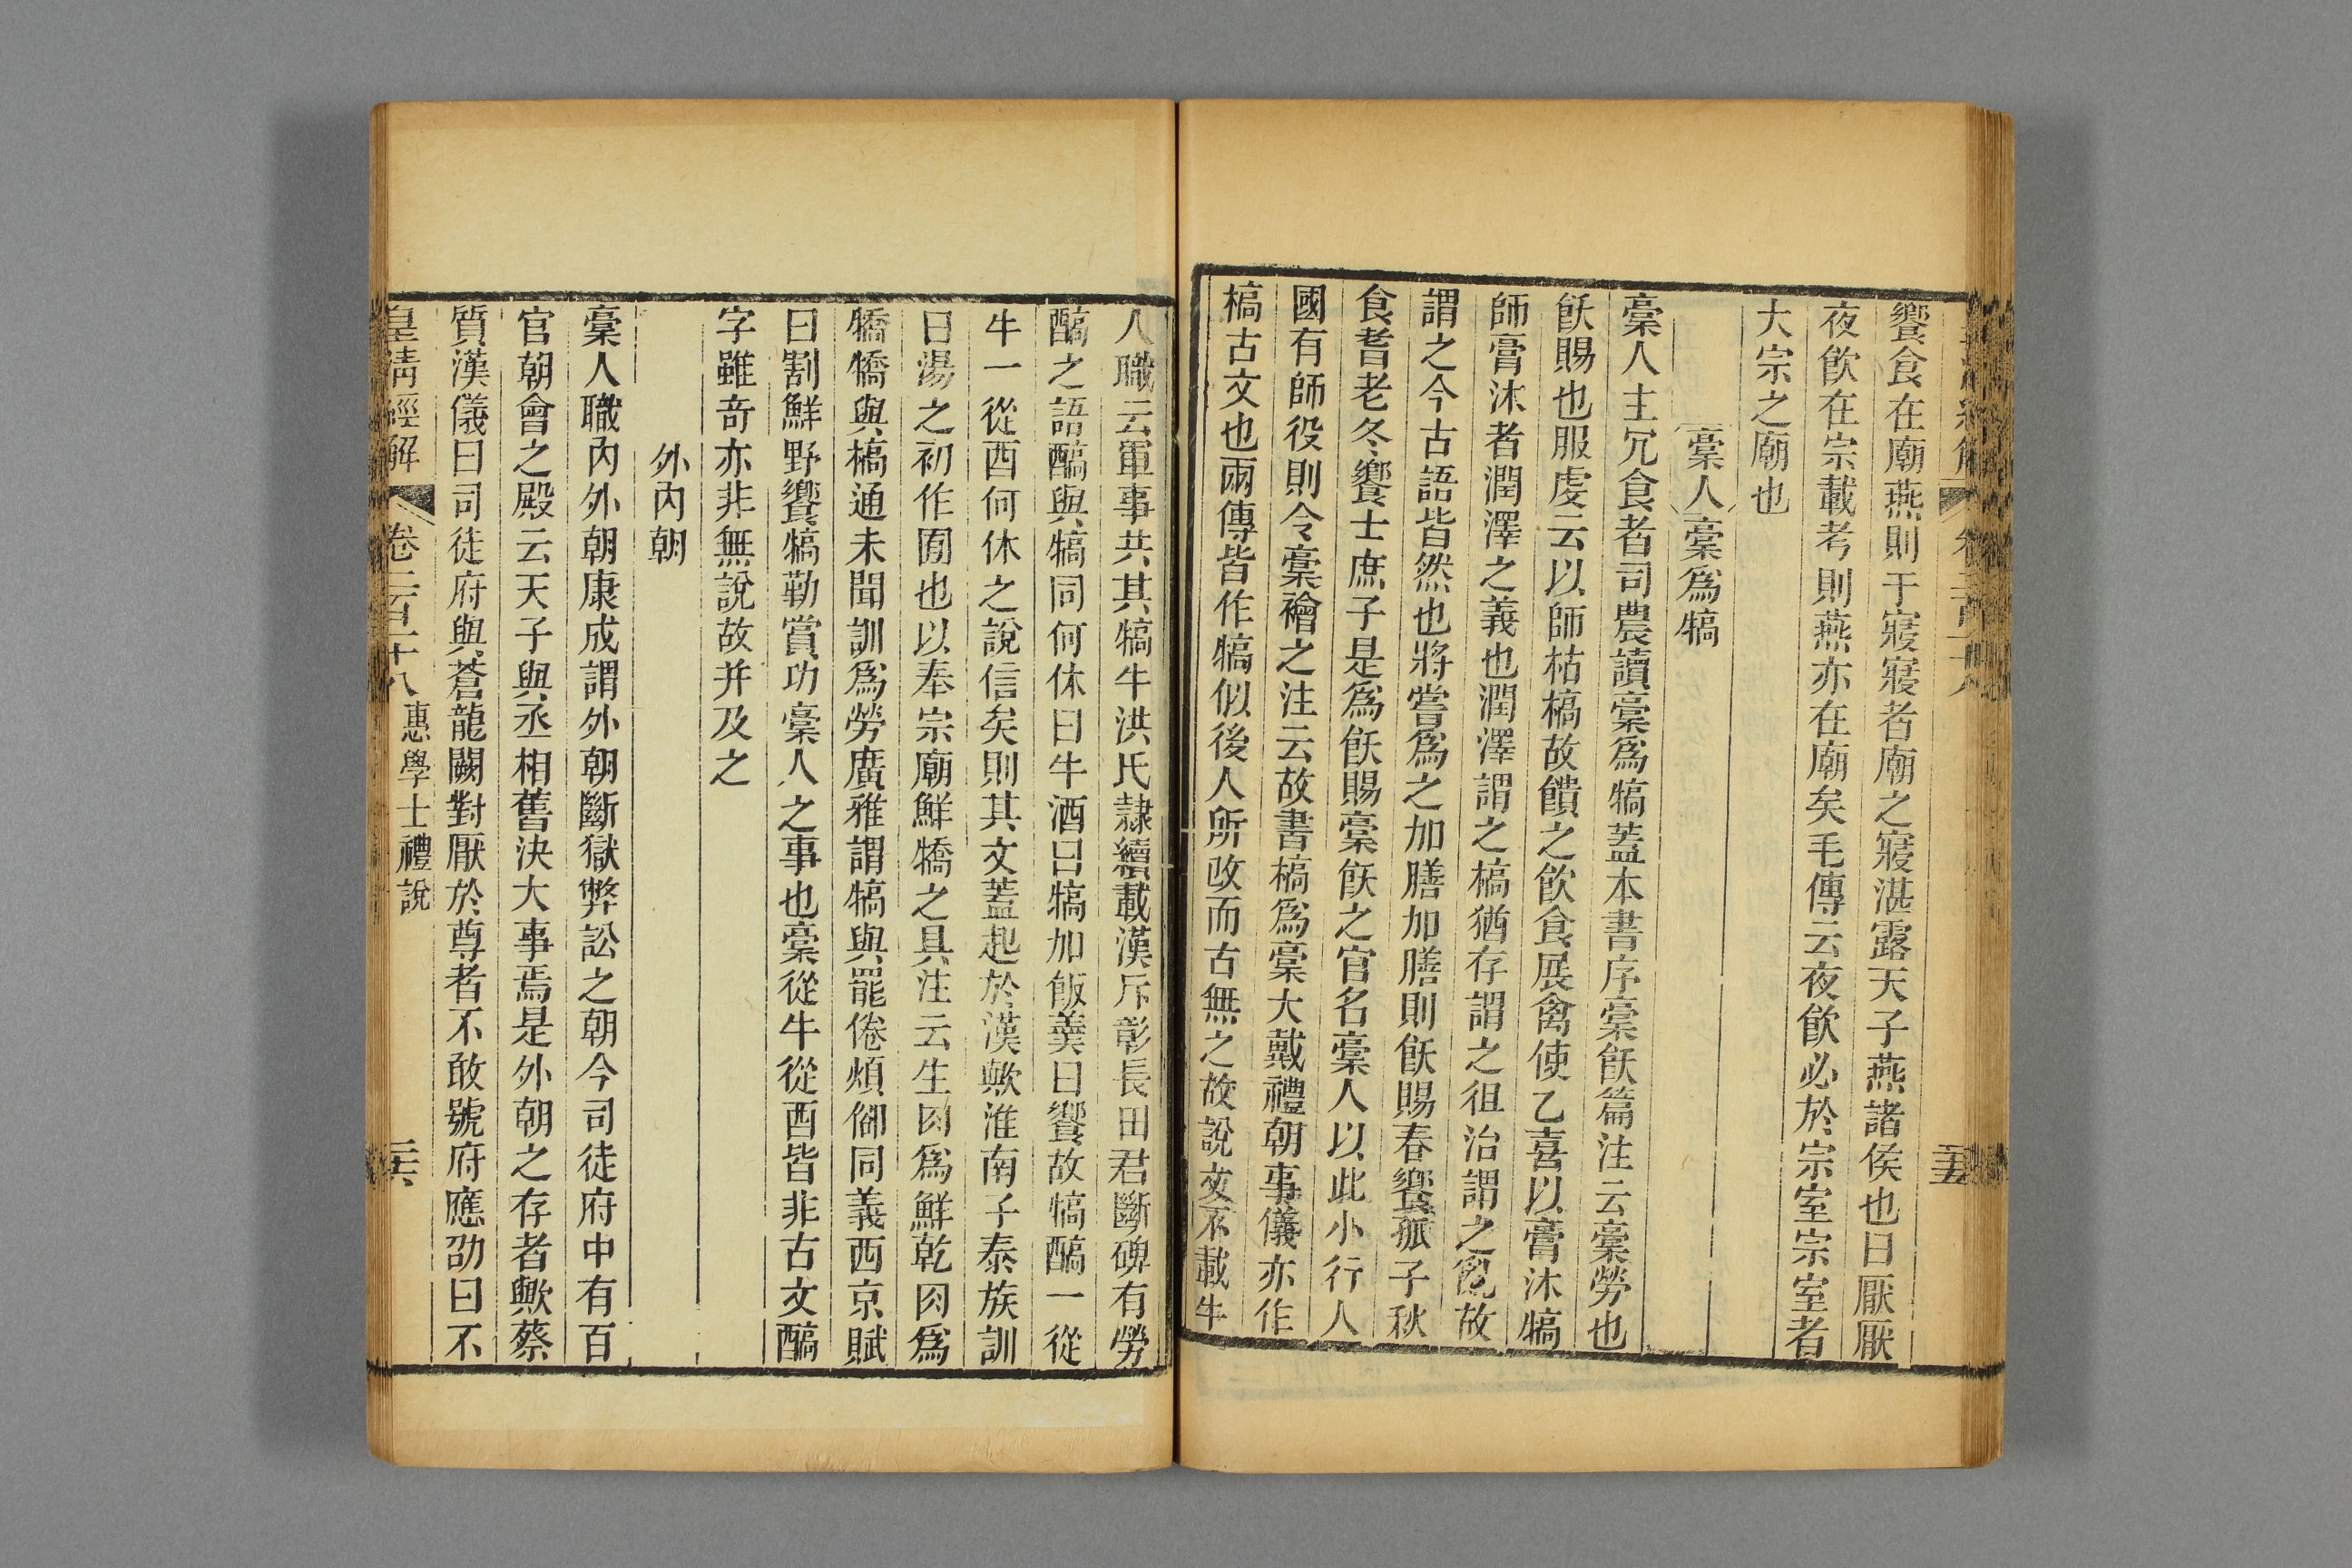 饗食在廟燕則于寢寢者廟之寢湛露天子燕諸侯也曰厭厭
夜飮在宗載考則燕亦在廟矣毛傳云夜飮必於宗室宗室者
大宗之廟也
槀人槀爲犒
槀人主冗食者司農讀槀爲犒蓋本書序槀飫篇注云槀勞也
飫賜也服虔云以師枯槁故饋之飮食展禽使乙喜以膏沐犒
師膏沐者潤澤之義也潤澤謂之槁猶存謂之徂治謂之亂故
謂之今古語皆然也將嘗爲之加膳加膳則飫賜春饗孤子秋
食耆老冬饗士庶子是爲飫賜槀飫之官名槀人以此小行人
國有師役則令槀禬之注云故書槁爲槀大戴禮朝事儀亦作
槁古文也兩傳皆作犒似後人所改而古無之故說文不載牛
人職云軍事共其犒牛洪氏隷續載漢斥彰長田君斷碑有勞
醕之語醕與犒同何休曰牛酒曰犒加飯羹曰饗故犒醕一從
牛一從酉何休之說信矣則其文蓋起於漢歟淮南子泰族訓
曰湯之初作囿也以奉宗廟鮮犞之具注云生肉爲鮮乾肉爲
犞犞與槁通未聞訓爲勞廣雅謂犒與罷倦煩御同義西京賦
曰割鮮野饗犒勤賞功槀人之事也槀從牛從酉皆非古文醕
字雖奇亦非無說故并及之
外內朝
槀人職內外朝康成謂外朝斷獄弊訟之朝今司徒府中有百
官朝會之殿云天子與丞相舊決大事焉是外朝之存者歟蔡
質漢儀曰司徒府與蒼龍闕對厭於尊者不敢號府應劭曰不
皇淸經解 卷二百二十八 惠學士禮說 二六